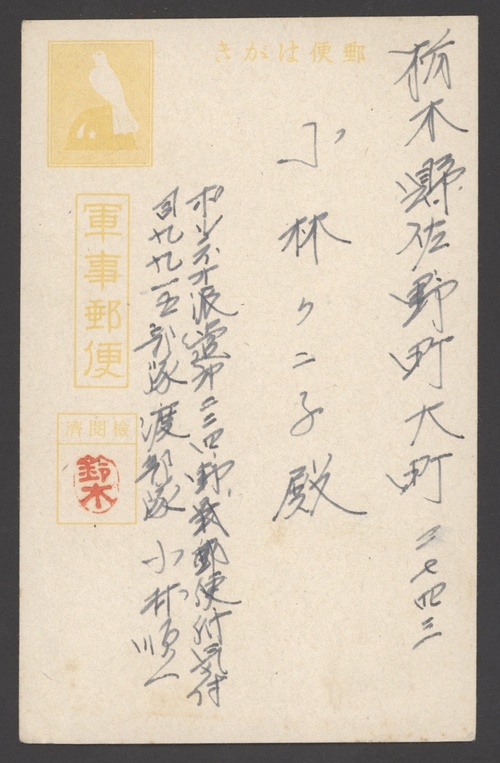 郵便はがき
栃木縣佐野町大町二七四三
小林クニ子殿
ボルネオ派遣 二三四野戰郵便 気付
九九一五部隊渡部隊 小林順一
軍事郵便
檢閲濟
鈴木